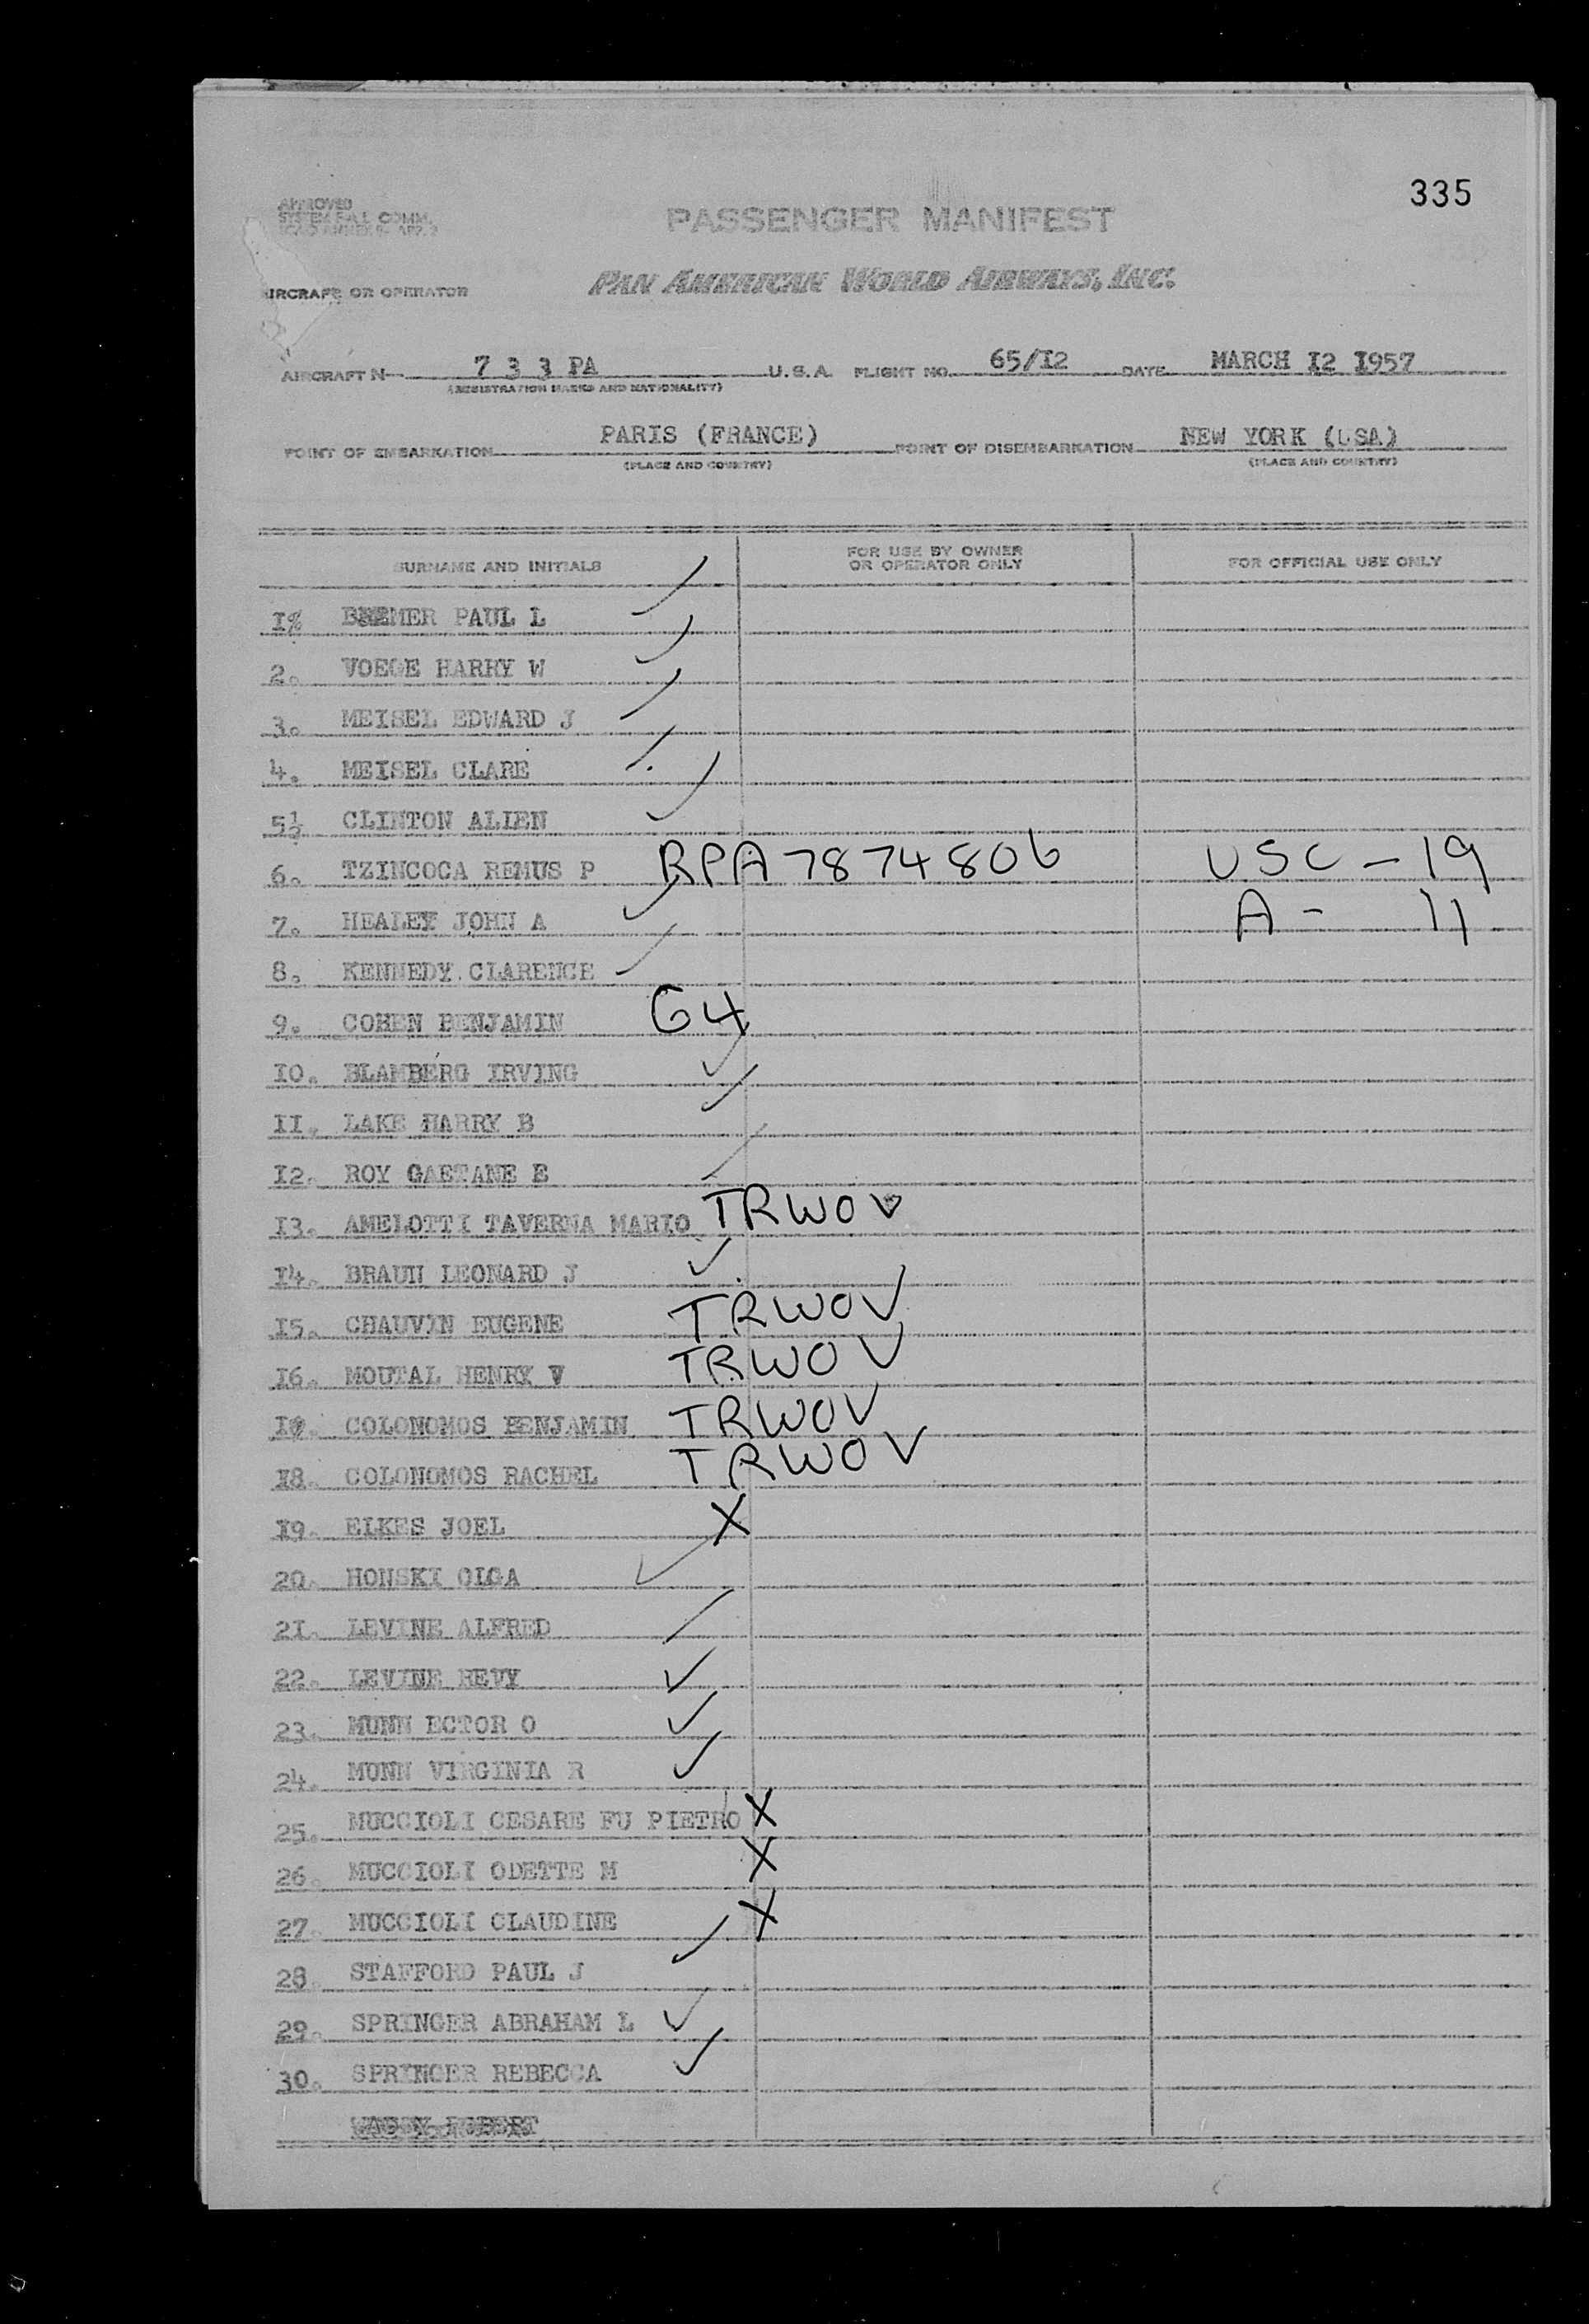 335
APPROVED
SYSTEM F.A.L. COMM.
PASSENGER MANIFEST
PAN AMERICAN WORLD AIRWAYS, INC.
AIRCRAFT OR OPERATOR
AIRCRAFT N 7 3 3 PA U.S.A. FLIGHT NO. 65/I2 DATE MARCH I2 I957
(REGISTRATION MARKS AND NATIONALITY)
POINT OF EMBARKATION PARIS (FRANCE) POINT OF DISEMBARKATION NEW YORK (USA)
(PLACE AND COUNTRY) (PLACE AND COUNTRY)
SURNAME AND INITIALS FOR USE BY OWNER OR OPERATOR ONLY FOR OFFICIAL USE ONLY
BREMER PAUL L
2. VOEGE HARRY W
3. MEISEL EDWARD J
4. MEISEL CLARE
CLINTON ALIEN
6. TZINCOCA REMUS P RPA 7874806 USC - 19
7. HEALEY JOHN A A - 11
8. KENNEDY CLARENCE
9. COHEN BENJAMIN G4
I0. BLAMBERG IRVING ✓
II. LAKE HARRY B ✓
I2. ROY GAETANE E
I3. AMELOTTI TAVERNA MARIO TRWOV
I4. BRAUN LEONARD J ✓
I5. CHAUVIN EUGENE TRWOV
I6. MOUTAL HENRY V TRWOV
COLONOMOS BENJAMIN TRWOV
I8. COLONOMOS RACHEL TRWOV
I9. ELKES JOEL X
20. HONSKI OLGA ✓
2I. LEVINE ALFRED
22. LEVINE REVY ✓
23. MUNN ECTOR O ✓
24. MUNN VIRGINIA R ✓
25. MUCCIOLI CESARE FU PIETRO X
26. MUCCIOLI ODETTE M X
27. MUCCIOLI CLAUDINE X
28. STAFFORD PAUL J ✓
29. SPRINGER ABRAHAM L ✓
30. SPRINGER REBECCA ✓